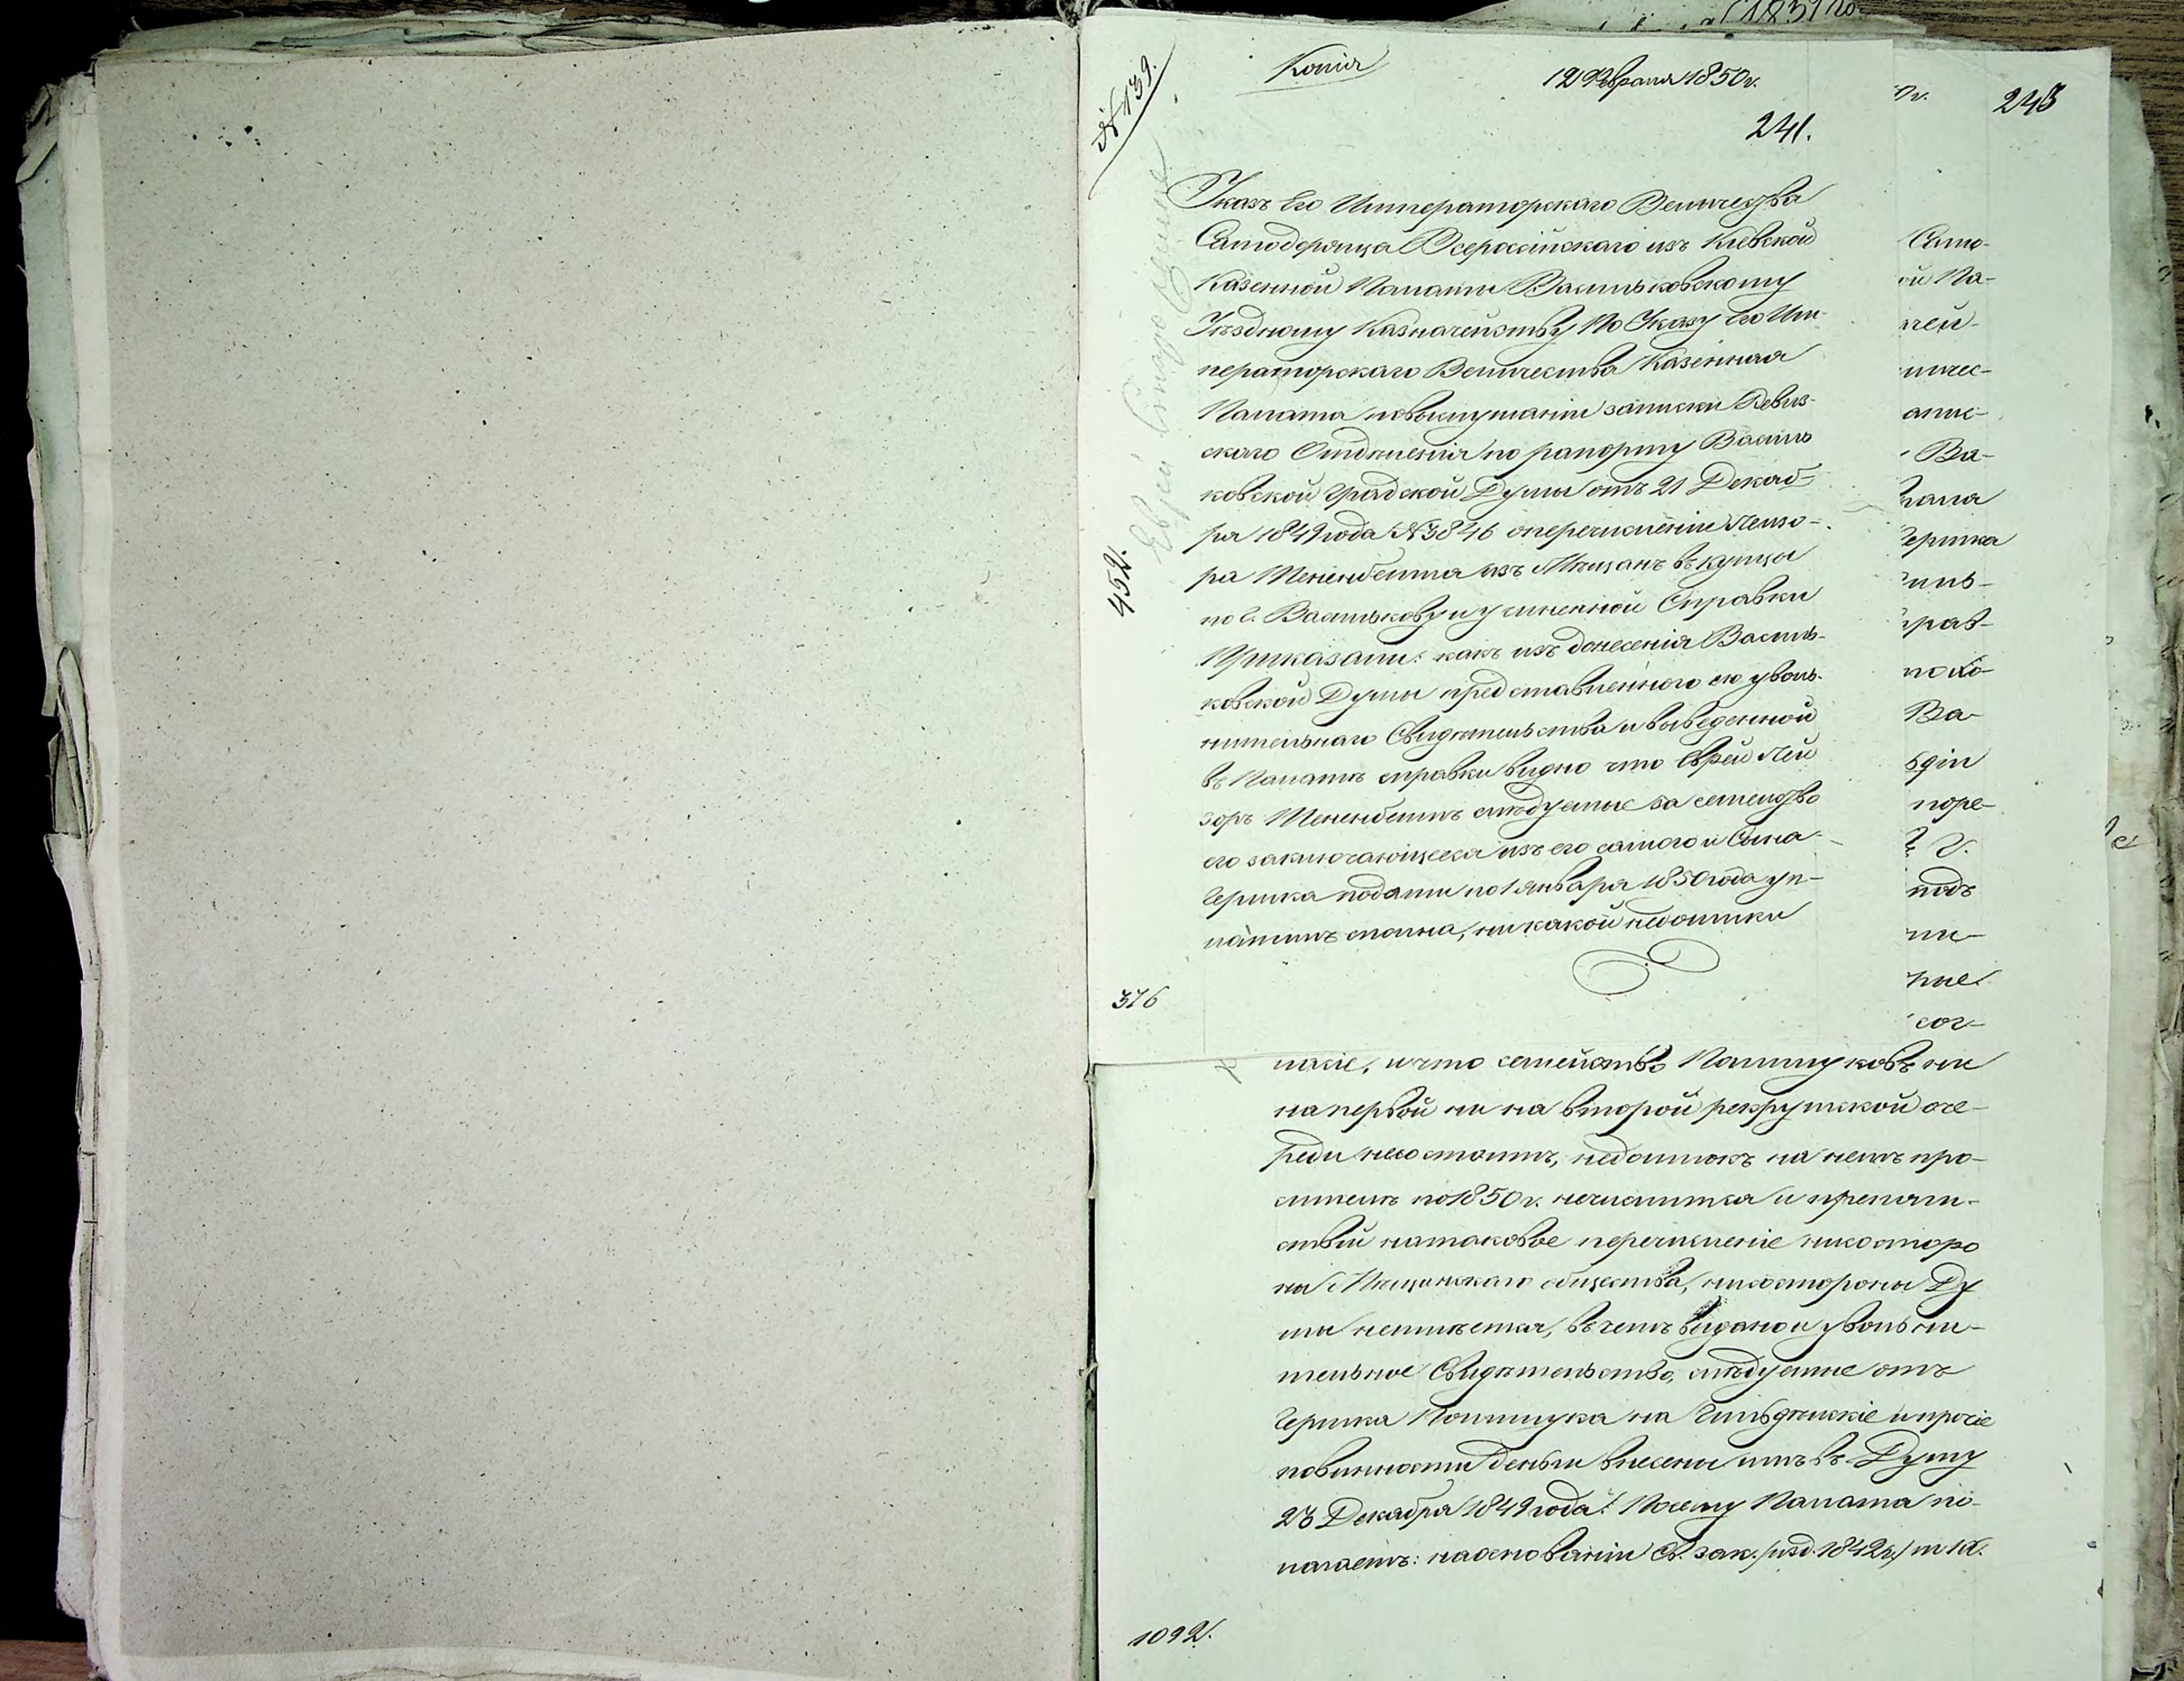 1851 го
№ 139.
Копія
12 Февраля 1850 г.
241.
Указъ Его Императорскаго Величества
Самодержца Всероссійскаго изъ Кіевской
Казенной Палаты Васильковскому
Уѣздному Казначейству По Указу Его Им-
ператорскаго Величества Казенная
Палата по выслушаніи записки Ревиз-
скаго Отдѣленія по рапорту Василь
ковской Градской Думы отъ 21 Декаб-
ря 1849 года № 3846 о перечисленіи Лейзо-
ра из Мѣщанъ въ купцы
по г. Василькову и учиненной Справки
Приказали: какъ изъ донесенія Василь-
ковской Думы представленного ею уволь-
нительнаго Свидѣтельства и выведенной
въ Палатѣ справки видно что Еврей Лей
зоръ слѣдуемые за семейство
его заключающееся изъ его самого и Сына
Гершка подати по 1 января 1850 года уп-
латилъ сполна, никакой недоимки
452.
Еврей
376
0 г.
243
Само-
ой Па-
чей-
личес-
апис-
Ва-
Гершка
силь-
прав-
по хо-
Ва-
ндіи
поре-
подъ
ные
сог-
ласіе, и что семейство ни
на первой ни на второй рекрутской оче-
реди не состоитъ, недоимокъ на немъ про-
стыхъ по 1850 г. не числится и препят-
ствій на таковое перечисленіе ни со сторо
ны Мѣщанскаго общества, ни со стороны Ду
мы не имѣется, въ чемъ выдано и увольни-
тельное Свидѣтельство, слѣдуемые отъ
Гершка на Гильдейскіе и прочіе
повинности деньги внесены имъ въ Думу
23 Декабря 1849 года. Посему Палата по-
лагаетъ: на основаніи Св. зак. /изд. 1842 г./ т. IX.
1092.